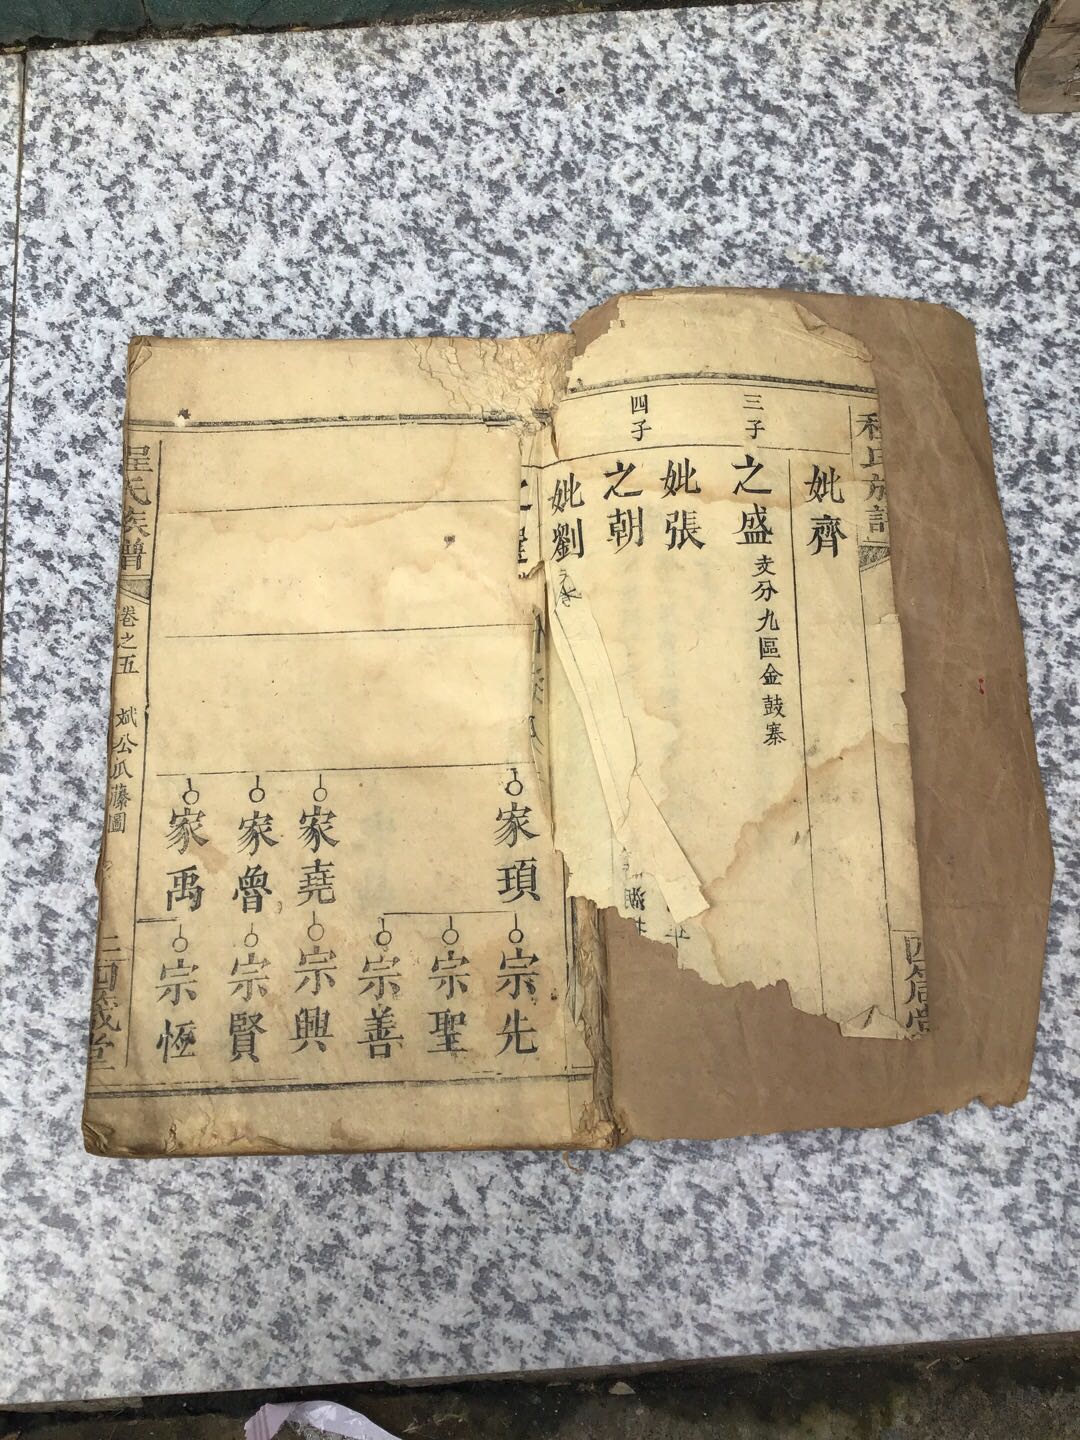 程氏族譜
妣齊
三子
之盛
支分九區金鼓寨
妣張
四子
之朝
妣劉
家頊
家堯
家魯
家禹
宗先
宗聖
宗善
宗興
宗賢
宗恆
程氏族譜
卷之五
斌公瓜藤圖
四箴堂